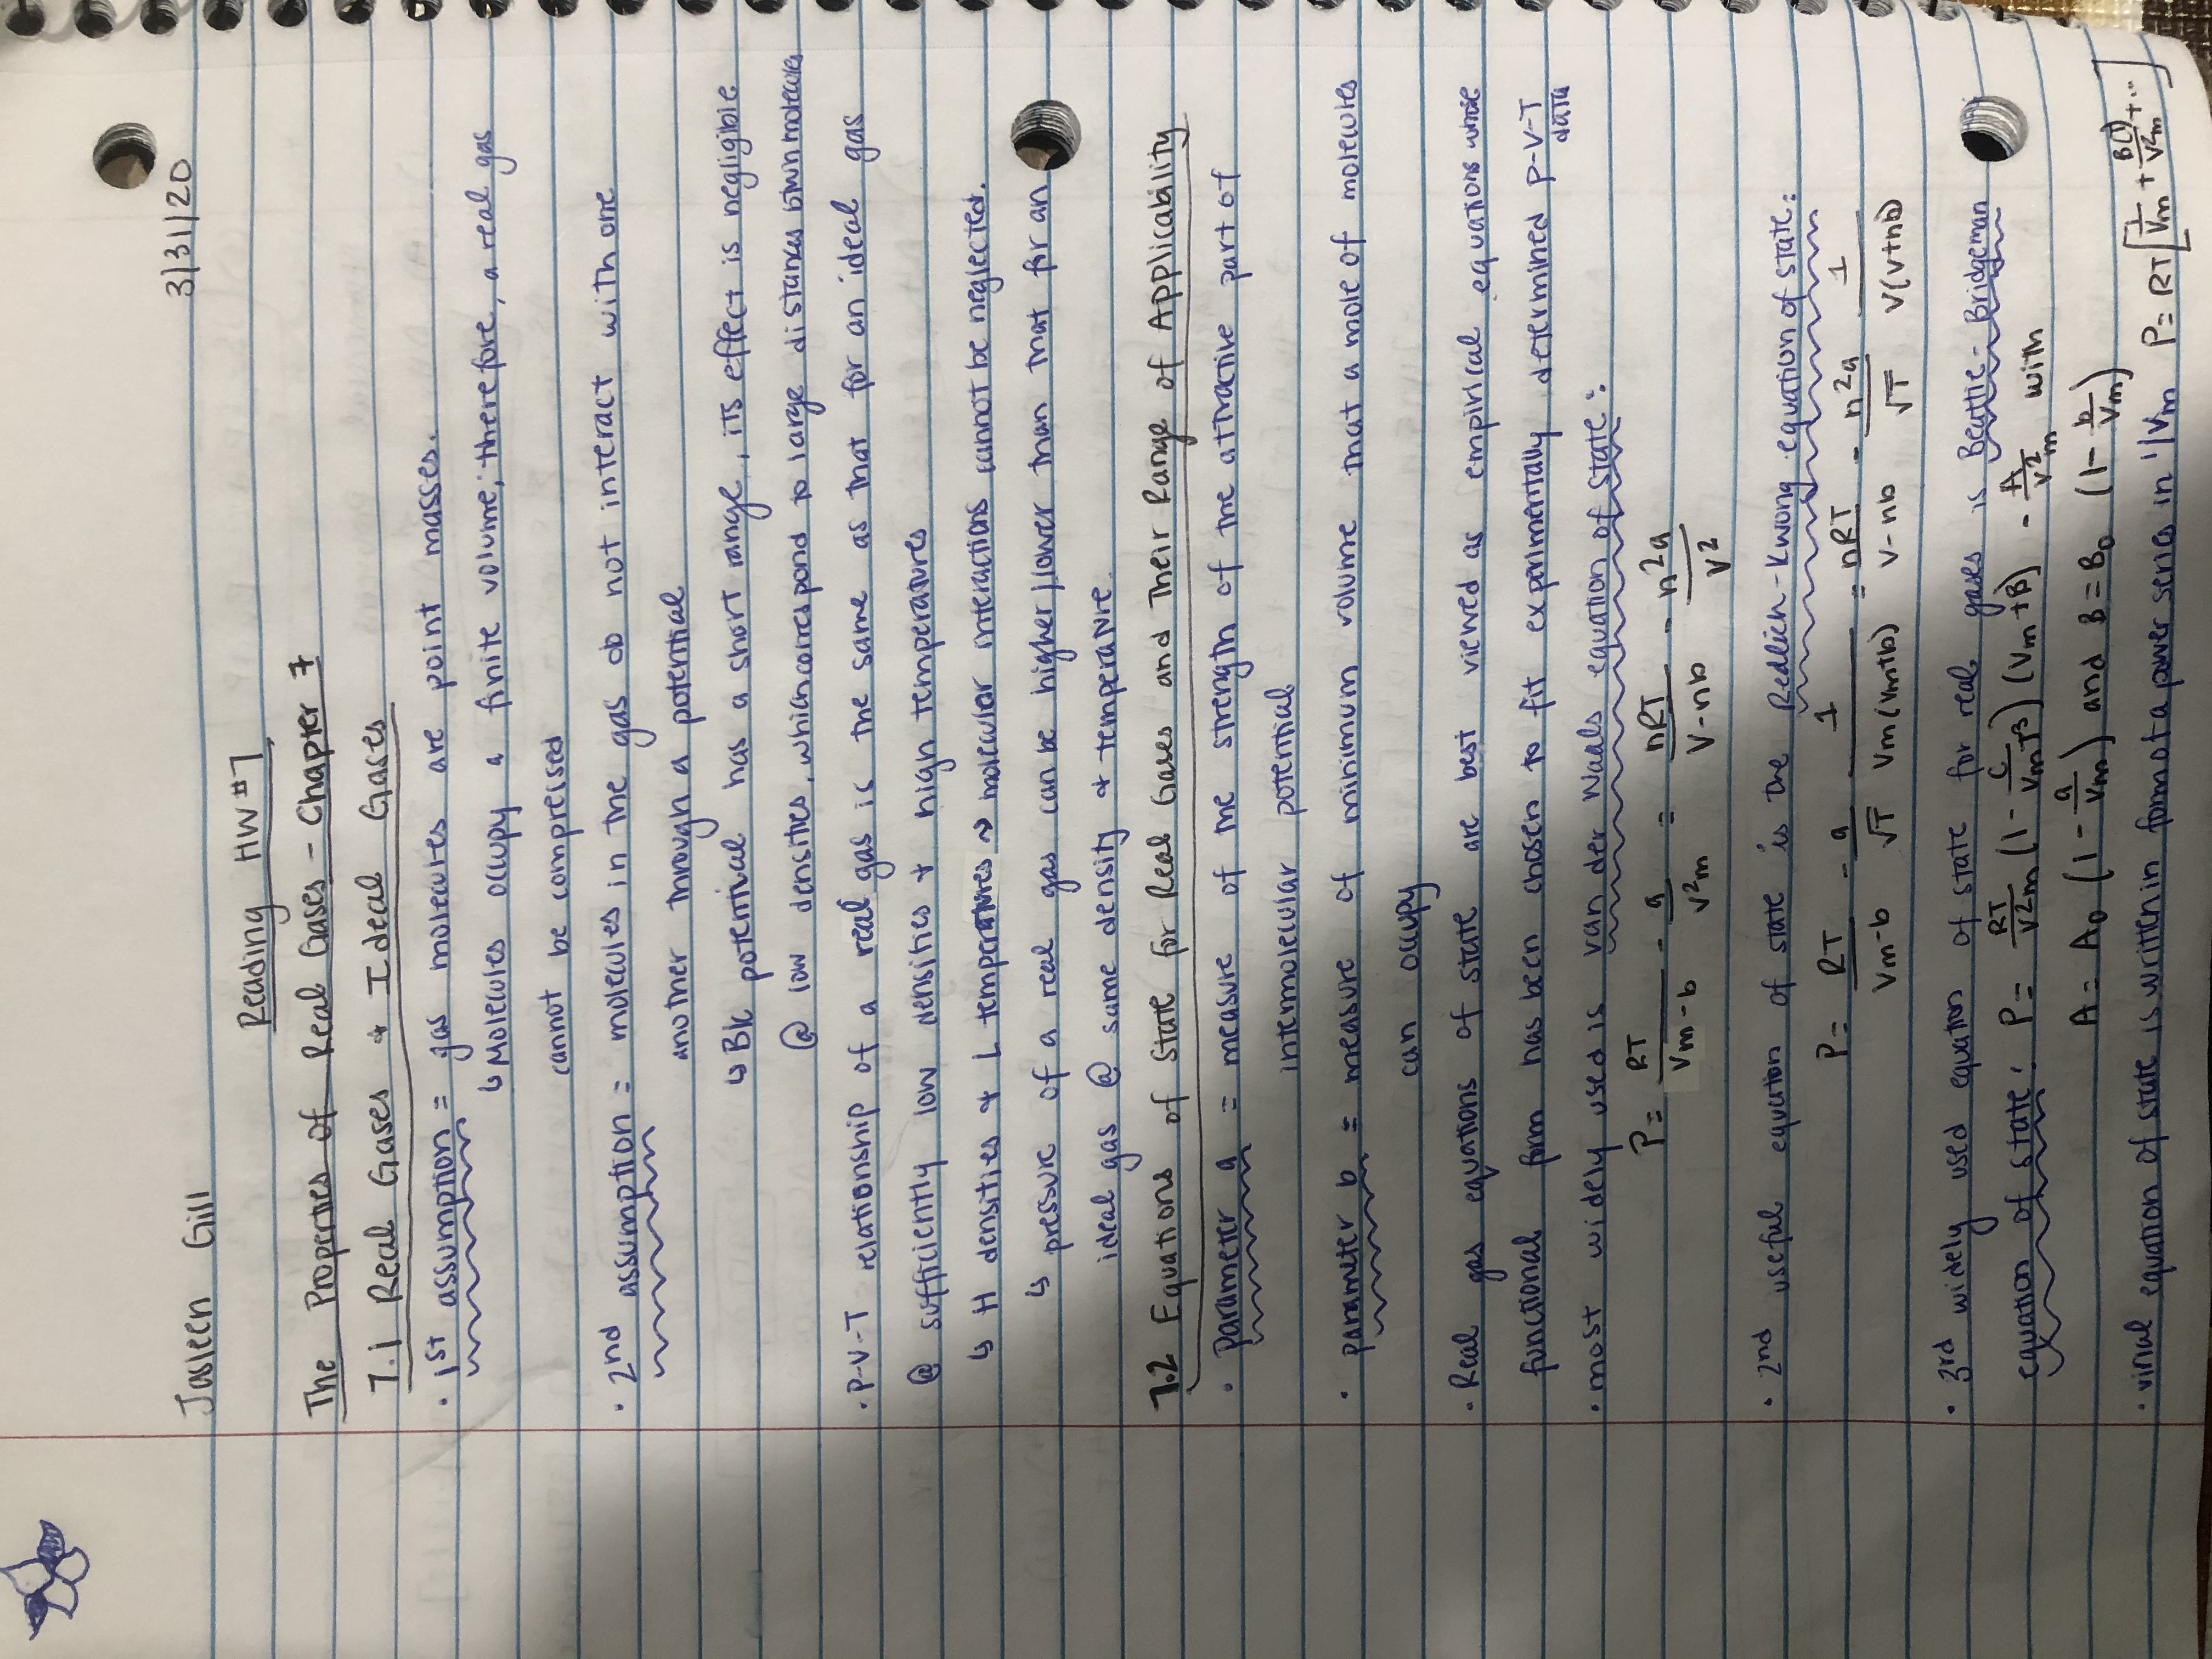 Jasleen Gill 3/31/20
Reading HW #7
The Properties of Real Gases - Chapter 7
7.1 Real Gases & Ideal Gases
• 1st assumption = gas molecules are point masses.
↳ Molecules occupy a finite volume; therefore, a real gas
cannot be compressed
• 2nd assumption = molecules in the gas do not interact with one
another through a potential
↳ B/c potential has a short range, its effect is negligible
@ low densities, which correspond to large distances btwn molecules
• P-V-T relationship of a real gas is the same as that for an ideal gas
@ sufficiently low densities & high temperatures
↳ H densities & L temperatures → molecular interactions cannot be neglected.
↳ pressure of a real gas can be higher/lower than that for an
ideal gas @ same density & temperature.
7.2 Equations of State for Real Gases and Their Range of Applicability
• parameter a = measure of the strength of the attractive part of
intermolecular potential
• parameter b = measure of minimum volume that a mole of molecules
can occupy
• Real gas equations of state are best viewed as empirical equations whose
functional form has been chosen to fit experimentally determined P-V-T
data
• most widely used is van der Waals equation of state:
P = RT/(Vm-b) - a/V²m = nRT/(V-nb) - n²a/V²
• 2nd useful equation of state is the Redlich-Kwong equation of state:
P = RT/(Vm-b) - a/√T 1/(Vm(Vm+b)) = nRT/(V-nb) - n²a/√T 1/(V(V+nb))
• 3rd widely used equation of state for real gases is Beattie-Bridgeman
equation of state: P = RT/V²m (1 - C/(VmT³)) (Vm+B) - A/V²m with
A = A₀ (1 - a/Vm) and B = B₀ (1 - b/Vm)
• virial equation of state is written in form of a power series in 1/Vm P = RT[1/Vm + B(T)/V²m + ...]